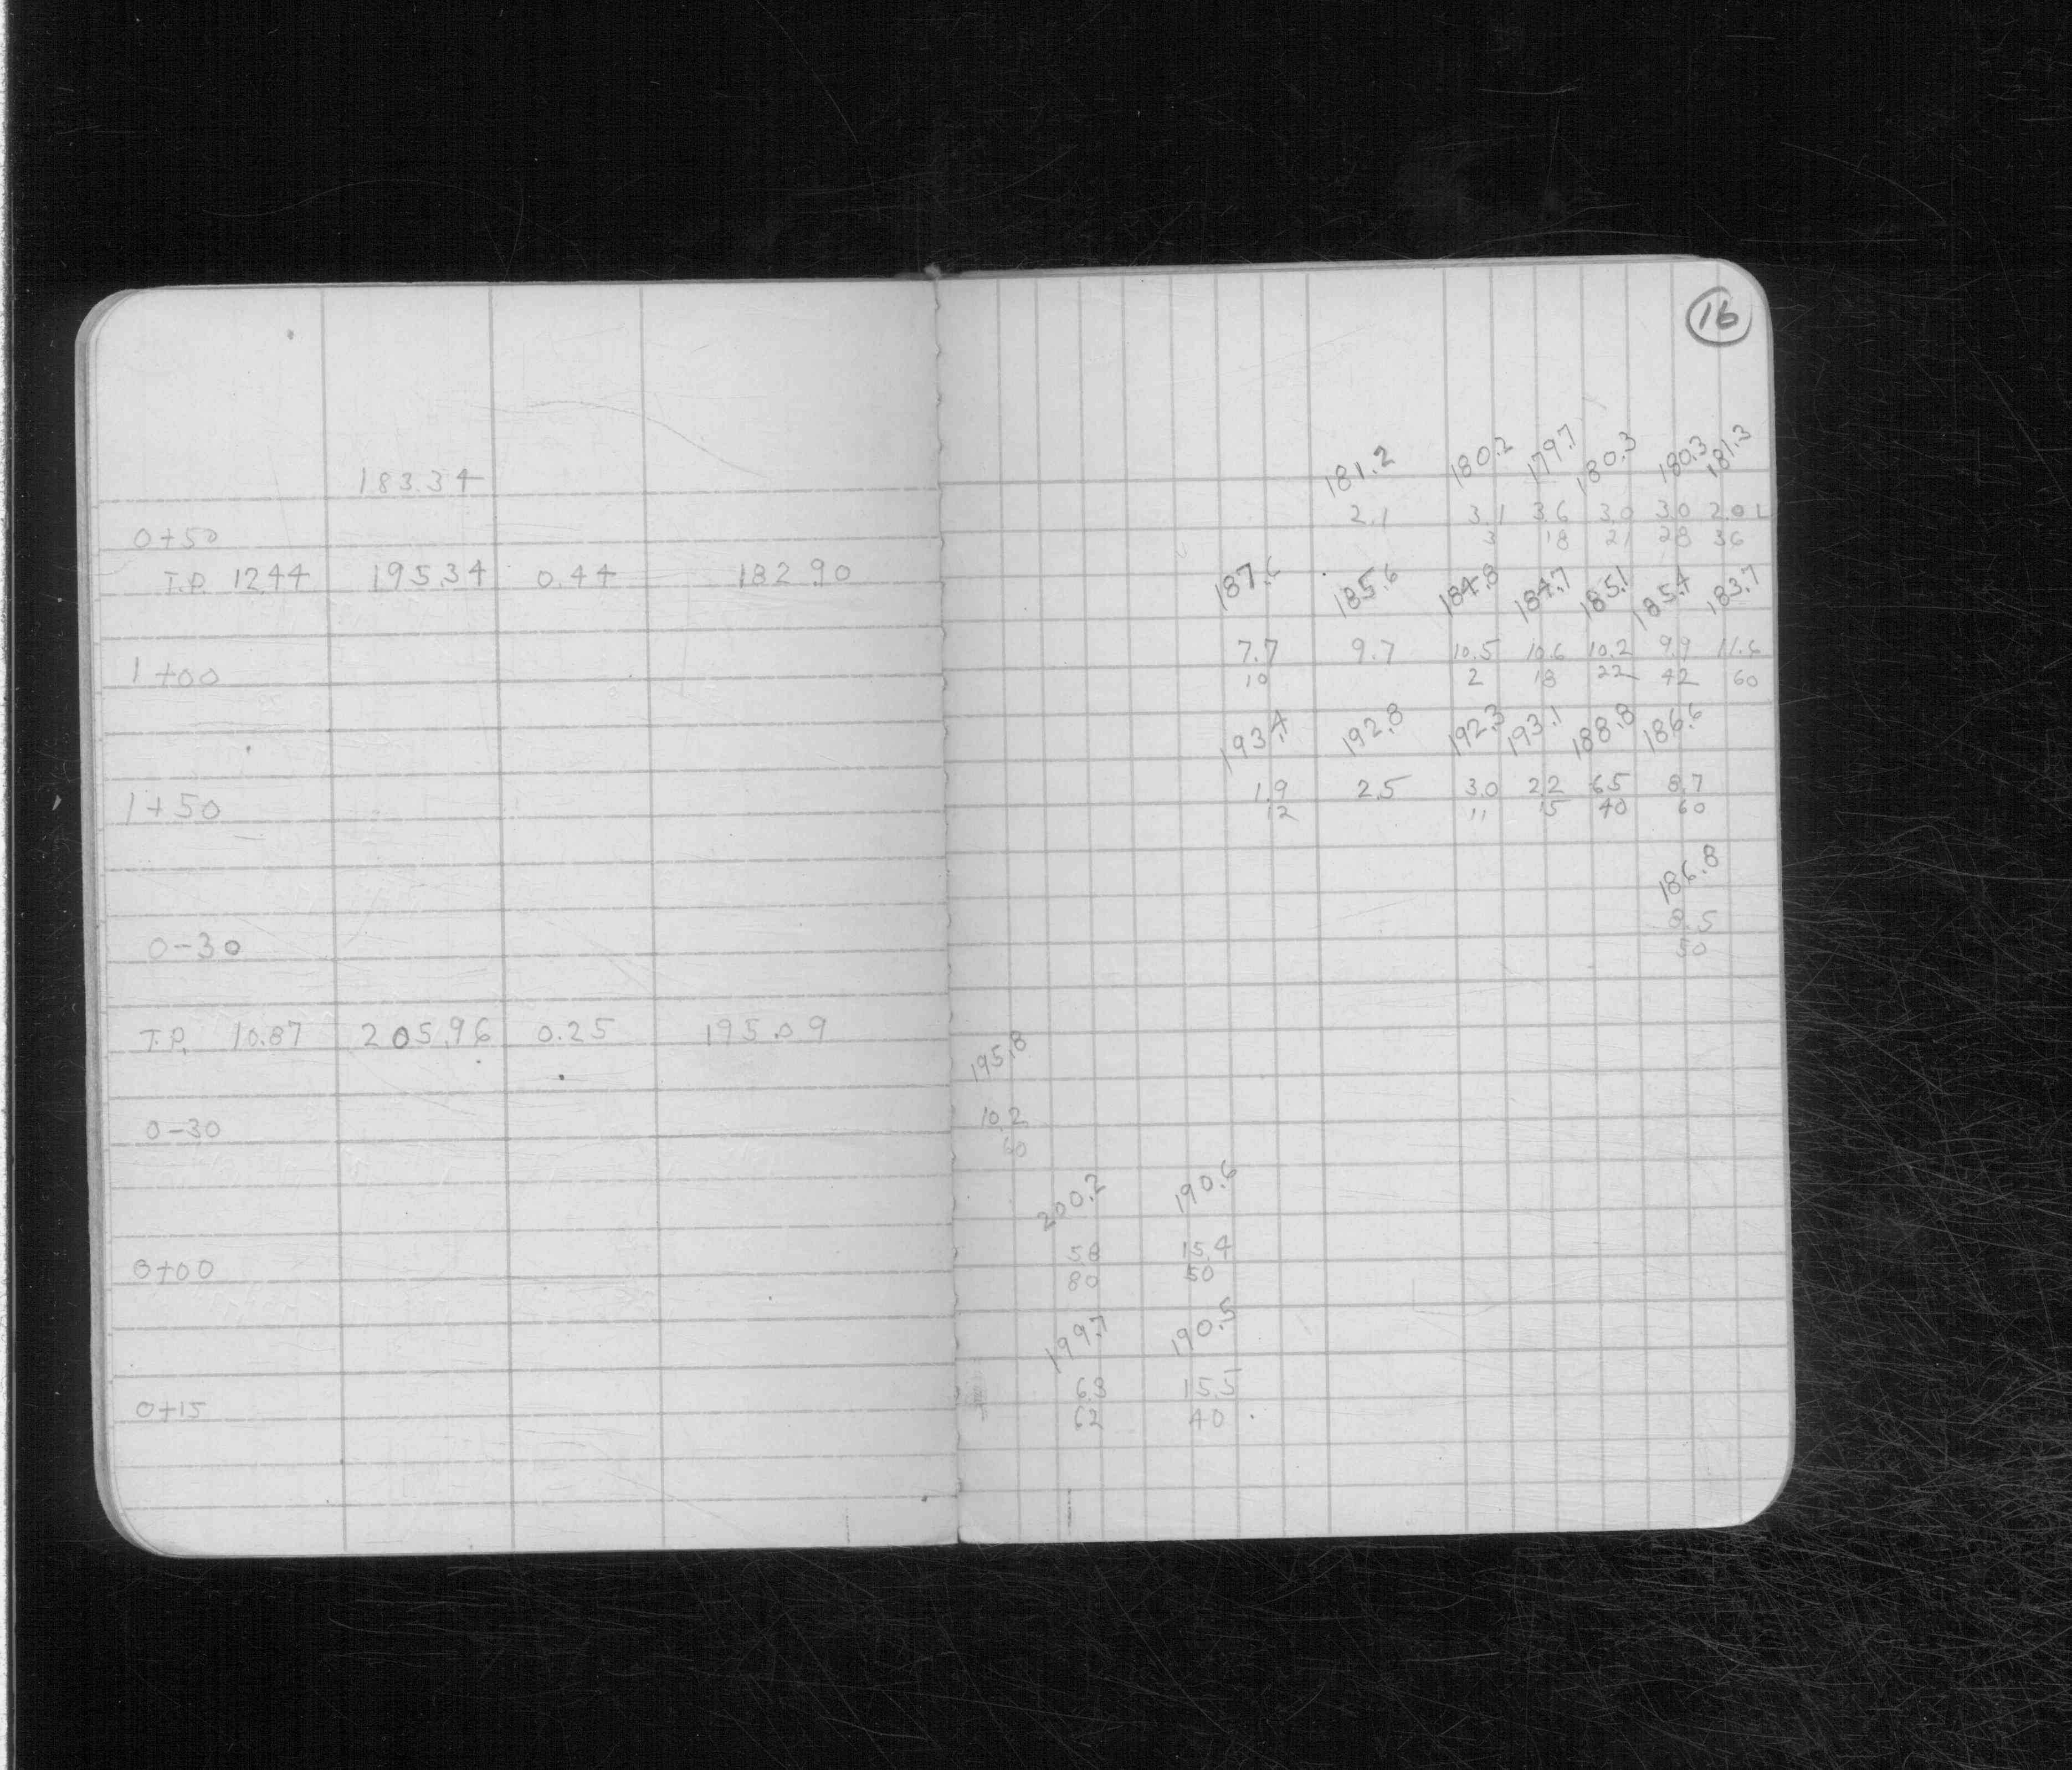 16
183.34
181.2 180.2 179.7 180.3 180.3 181.3
2.1 3.1 3.6 3.0 3.0 2.0 L
0+50
3 18 21 28 36
T.P. 12.44 195.34 0.44 182.90
187.6 185.6 184.8 184.7 185.1 185.4 183.7
7.7 9.7 10.5 10.6 10.2 9.9 11.6
1+00
10 2 18 22 42 60
193.4 192.8 192.3 193.1 188.8 186.6
1.9 2.5 3.0 2.2 6.5 8.7
1+50
12 11 15 40 60
186.8
8.5
0-30
50
T.P. 10.87 205.96 0.25 195.09
195.8
10.2
0-30
60
200.2 190.6
5.8 15.4
0+00
80 50
199.7 190.5
6.3 15.5
0+15
62 40